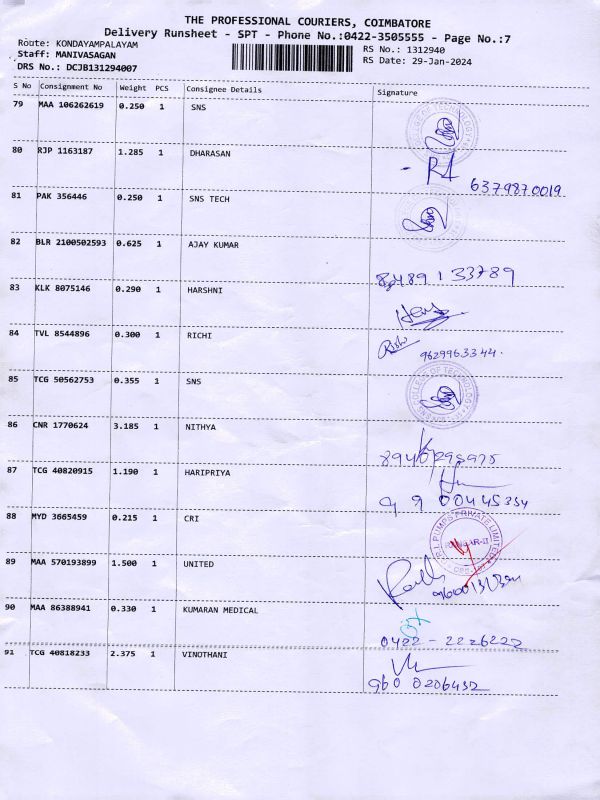 THE PROFESSIONAL COURIERS, COIMBATORE
Delivery Runsheet - SPT - Phone No.:0422-3505555 - Page No.:7
Route: KONDAYAMPALAYAM RS No.: 1312940
Staff: MANIVASAGAN RS Date: 29-Jan-2024
DRS No.: DCJB131294007
S No Consignment No Weight PCS Consignee Details Signature
79 MAA 106262619 0.250 1 SNS
80 RJP 1163187 1.285 1 DHARASAN
6379870019
81 PAK 356446 0.250 1 SNS TECH
82 BLR 2100502593 0.625 1 AJAY KUMAR
8489133789
83 KLK 8075146 0.290 1 HARSHNI
84 TVL 8544896 0.300 1 RICHI
9629963344.
85 TCG 50562753 0.355 1 SNS
COLLEGE OF TECHNOLOGY
86 CNR 1770624 3.185 1 NITHYA
87 TCG 40820915 1.190 1 HARIPRIYA
88 MYD 3665459 0.215 1 CRI
PUMPS PRIVATE LIMITED
89 MAA 570193899 1.500 1 UNITED
90 MAA 86388941 0.330 1 KUMARAN MEDICAL
0422-2226222
91 TCG 40818233 2.375 1 VINOTHANI
960 0206432